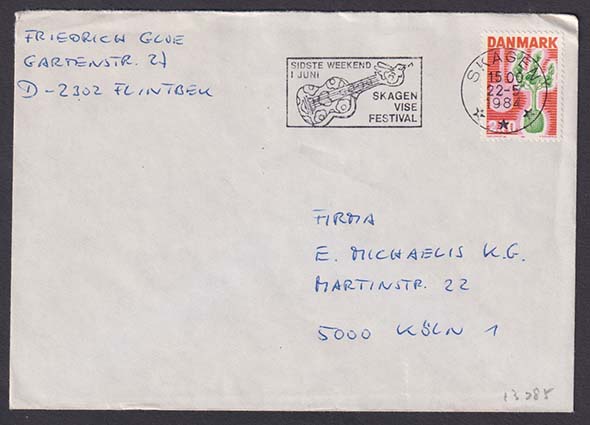 FRIEDRICH GLUE
GARTENSTR. 27
D-2302 FLINTBEK
SIDSTE WEEKEND
I JUNI
SKAGEN
VISE
FESTIVAL
DANMARK
SKAGEN
15.00
22-5
1984
FIRMA
E. MICHAELIS K.G.
MARTINSTR. 22
5000 KÖLN 1